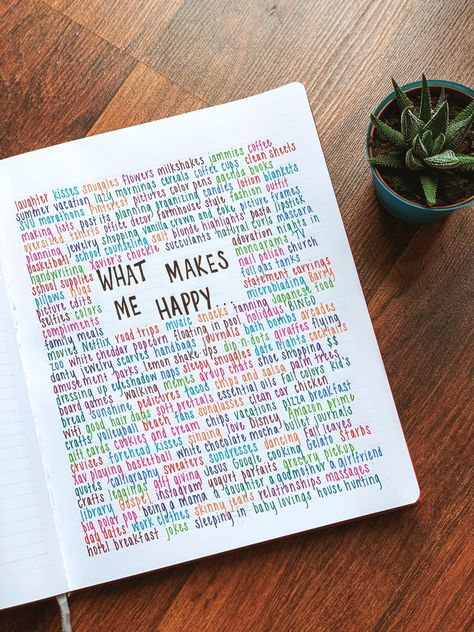 laughter kisses snuggles flowers milkshakes jammies coffee
summer vacation lazy mornings cereals coffee cups clean sheets
SVU marathons pinterest pictures color pens agenda books
making lists post its planning organizing candles lotion blankets
oversized tshirts office decor farmhouse style fashion outfit
planning jewelry shopping vanilla cream and coke picture frames
basketball school counseling salt blonde highlights pasta lipstick
handwriting Xavier's cheekie succulents natural hair mascara
school supplies adoration nights in
pillows monograms
picture edits nail polish church
selfies colors full gas tanks
compliments statement earrings
family meals microblading Barry
WHAT MAKES
ME HAPPY...
movies Netflix road trips music snacks tanning Japanese food
zoo white cheddar popcorn floating in pool holidays BINGO
dainty jewelry scarves handbags journals bath bombs arcades
amusement parks lemon shake ups dip n dots giraffes flying
dressing up eyeshadow naps sleepy snuggles date nights cocktails
board games walking memes group chats shoe shopping $$
bread sunshine pedicures tacos chips and salsa palm trees
wifi good hair days soft pretzels essential oils fall colors kid's
crafts volleyball beach fans sunglasses clean car chicken
gift cards cookies and cream chips vacations pizza breakfast
cruises forehead kisses singing love Disney Amazon prime
Xav playing basketball white chocolate mocha bullet journals
quotes calligraphy sweaters sundresses dancing fall leaves
crafts leggings gift giving Jesus Google cooking Gelato Starbs
library Gospel instagram yogurt parfaits grocery pickup
big polar pop being a mama a daughter a godmother a girlfriend
dad dates work clothes skinny jeans relationships massages
hotel breakfast jokes sleeping in baby lovings house hunting